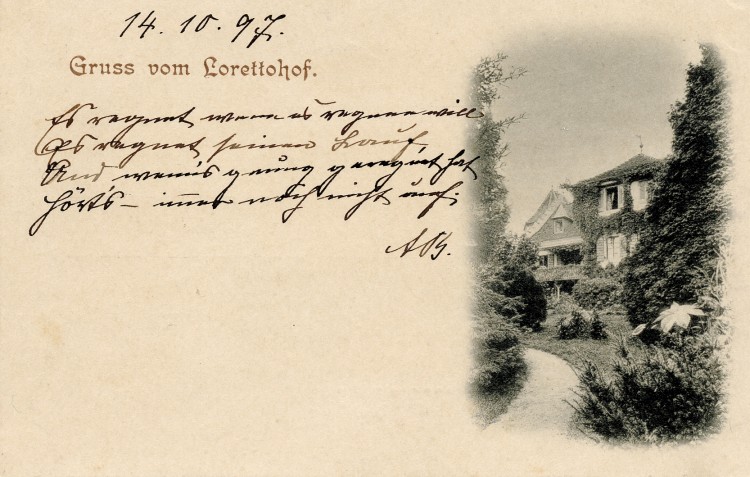 14. 10. 97.
Gruss vom Lorettohof.
Es regnet wenn es regnen will
Es regnet seinen Lauf,
Und wenn's genug geregnet hat
Hört's – immer noch nicht auf.